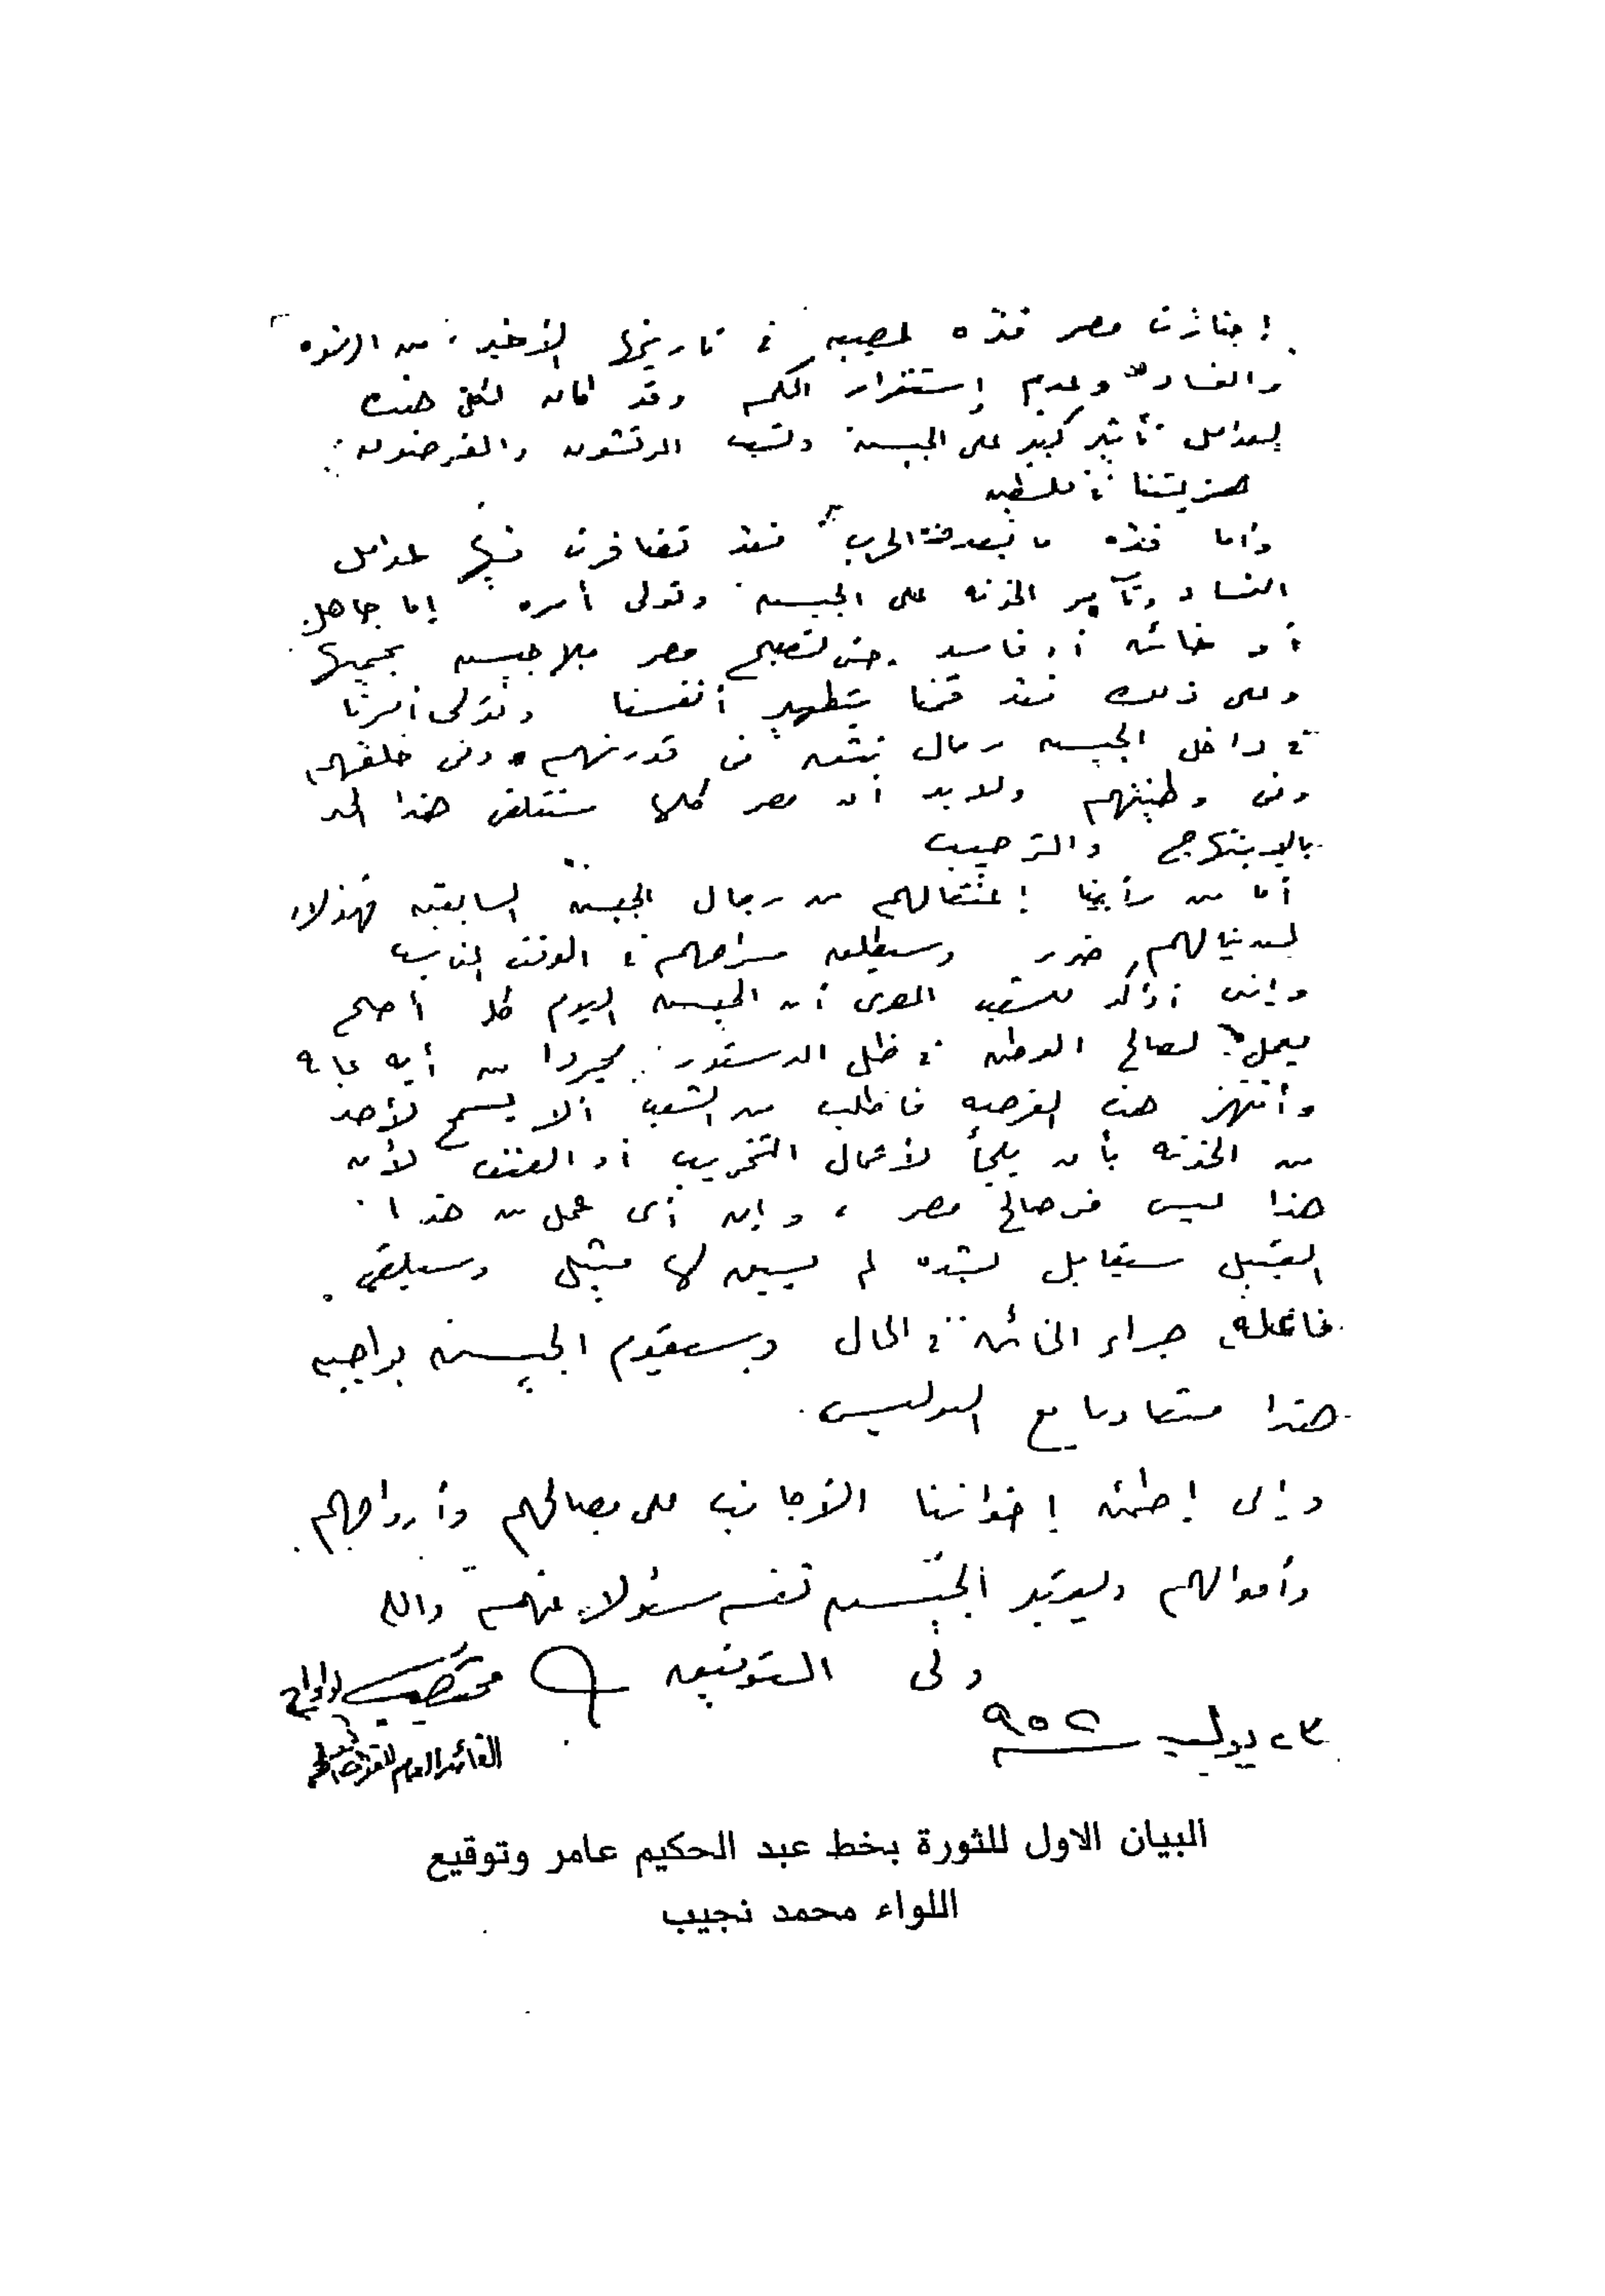 إجتازت مصر فتره عصيبه فى تاريخها الأخير من الرشوه
والفساد وعدم إستقرار الحكم وقد كان لكل هذه
العوامل تأثير كبير على الجيش وتسبب المرتشون والمغرضون
هزيمتنا فى فلسطين
وأما فتره ما بعد هذه الحرب فقد تضافرت فيها عوامل
الفساد وتآمر الخونه على الجيش وتولى أمره إما جاهل
أو خائن أو فاسد حتى تصبح مصر بلا جيش يحميها
وعلى ذلك فقد قمنا بتطهير أنفسنا وتولى أمرنا
فى داخل الجيش رجال نثق فى قدرتهم وفى خلقهم
وفى وطنيتهم ولابد أن مصر كلها ستتلقى هذا الخبر
بالابتهاج والترحيب
أما من رأينا إعتقالهم من رجال الجيش السابقين فهؤلاء
لن ينالهم ضرر وسيطلق سراحهم فى الوقت المناسب
وإنى أؤكد للشعب المصرى أن الجيش اليوم كله أصبح
يعمل لصالح الوطن فى ظل الدستور مجردا من أيه غايه
وأنتهز هذه الفرصه فأطلب من الشعب ألا يسمح لأحد
من الخونه بأن يلجأ لأعمال التخريب أو العنف لأن
هذا ليس فى صالح مصر ، وإن أى عمل من هذا
القبيل سيقابل بشده لم يسبق لها مثيل وسيلقى
فاعله جزاء الخائن فى الحال وسيقوم الجيش بواجبه
هذا متعاونا مع البوليس
وإنى إطمئن إخواننا الأجانب على مصالحهم وأرواحهم
وأموالهم ويعتبر الجيش نفسه مسئولا عنهم والله
ولى التوفيق محمد نجيب لواء أ ح
٢٣ يوليه ٩٥٢ القائد العام للقوات المسلحة
البيان الاول للثورة بخط عبد الحكيم عامر وتوقيع
اللواء محمد نجيب